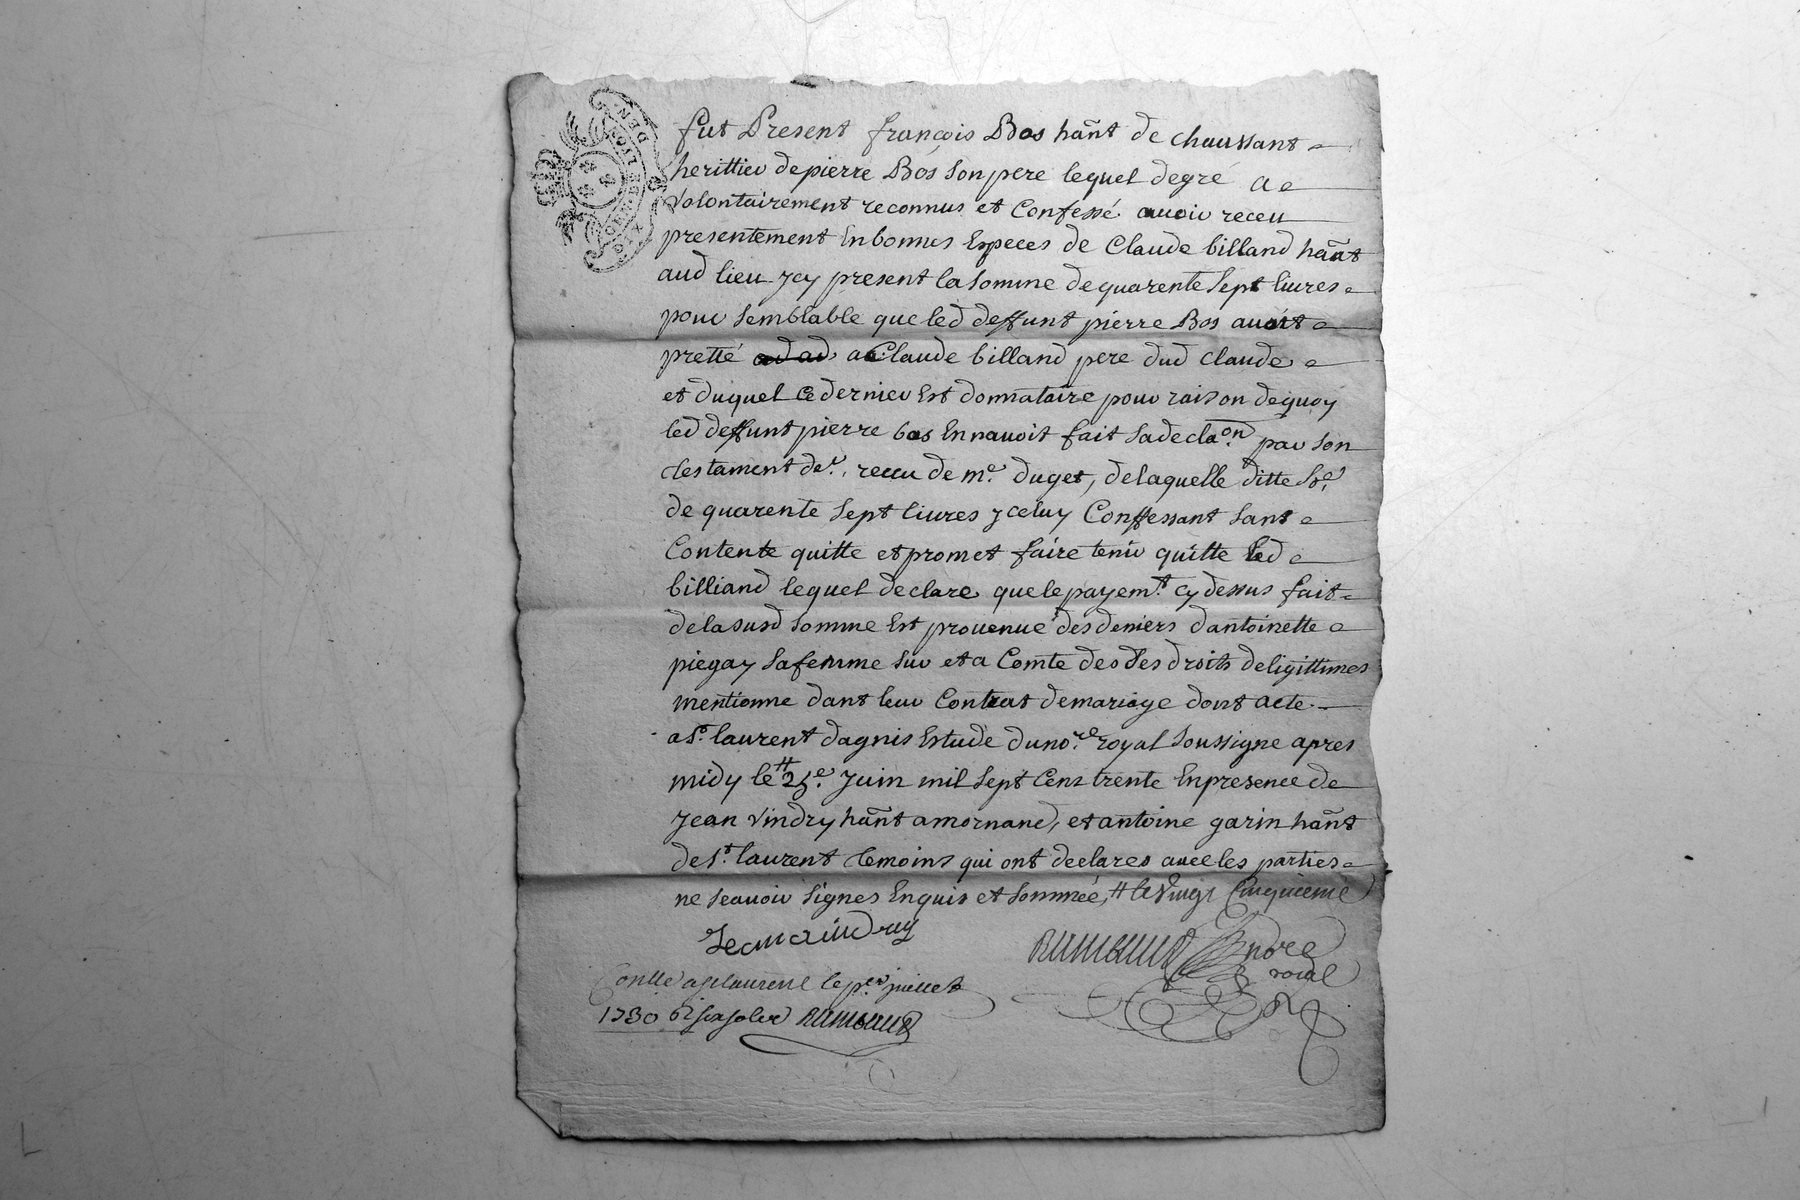 fut Present françois Bos hañt de chaussant
herittier de pierre Bos son pere lequel de gré a
volontairement reconnus et Confessé avoir receu
presentement En bonnes Especes de Claude billand hañt
aud lieu Jcy present la somme de quarente sept livres
pour semblable que led deffunt pierre Bos avoit
pretté a Claude billand pere dud Claude
et duquel Ce dernier Est donnataire pour raison dequoy
led deffunt pierre bos En navoit fait sa declaon. par son
testament der. receu de me. duget, de laquelle ditte Se.
de quarente sept livres yceluy Conffessant sant
Contente quitte et promet faire tenir quitte led
billiand lequel declare que le payemt. cy dessus fait
de la susd somme Est provenue des deniers dantoinette
piegay sa femme sur et a Comte des ses droits deligittimes
mentionne dant leur Contrat demariage dont acte
a St. laurent dagnis Estude du nore. royal soussigne apres
midy le # 25e. Juin mil sept Cens trente En presence de
Jean Vindry hañt a mornand, et antoine garin hañt
de st. laurent temoins qui ont declares avec les parties
ne scavoir signes Enquis et sommée, # le Vingt Cinquieme
Jean vindry
nore
roial
Conllé a st laurent le per juillet
1730 six solz